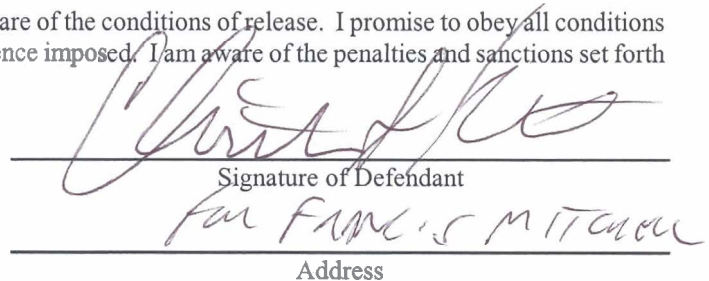 are of the conditions of release. I promise to obey all conditions
ence imposed. I am aware of the penalties and sanctions set forth
Signature of Defendant
For FRANCIS MITCHELL
Address